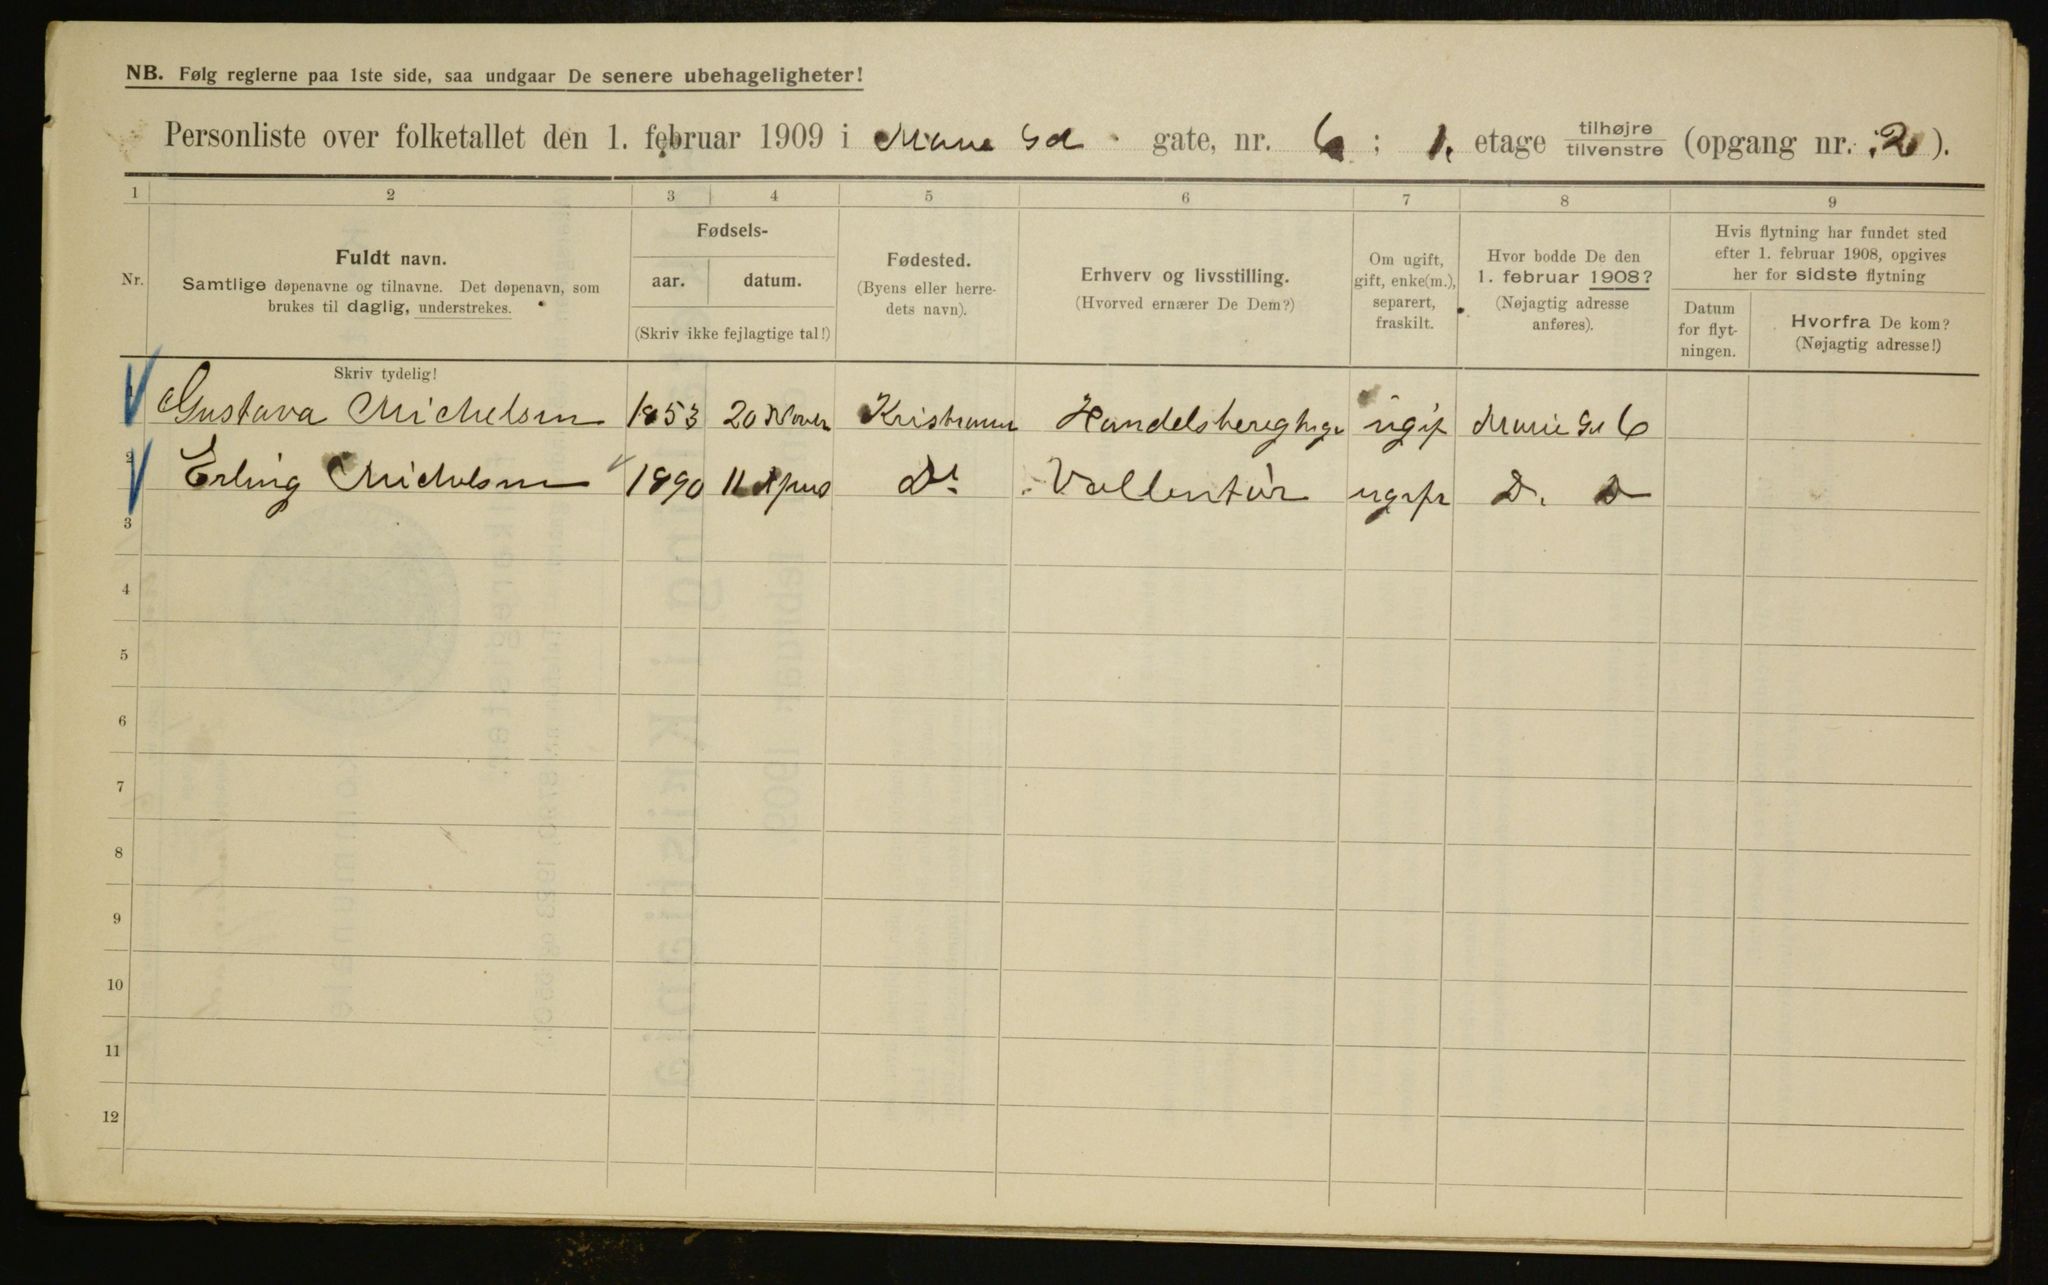 NB. Følg reglerne paa 1ste side, saa undgaar De senere ubehageligheter!
Personliste over folketallet den 1. februar 1909 i Marie Gd gate, nr. 6 ; 1. etage tilhøjre tilvenstre (opgang nr. 2 ).
1 2 3 4 5 6 7 8 9
Nr.
Fuldt navn.
Samtlige døpenavne og tilnavne. Det døpenavn, som
brukes til daglig, understrekes.
Skriv tydelig!
Fødsels-
aar. datum.
(Skriv ikke fejlagtige tal!)
Fødested.
(Byens eller herre-
dets navn).
Erhverv og livsstilling.
(Hvorved ernærer De Dem?)
Om ugift,
gift, enke(m.),
separert,
fraskilt.
Hvor bodde De den
1. februar 1908?
(Nøjagtig adresse
anføres).
Hvis flytning har fundet sted
efter 1. februar 1908, opgives
her for sidste flytning
Datum
for flyt-
ningen.
Hvorfra De kom?
(Nøjagtig adresse!)
Gustava Michelsen 1853 20 Novem Handelsberegtige ugif Marie Gd 6
2 Erling Michelsen 1890 11 Do Vollentør D. D
3
4
5
6
7
8
9
10
11
12